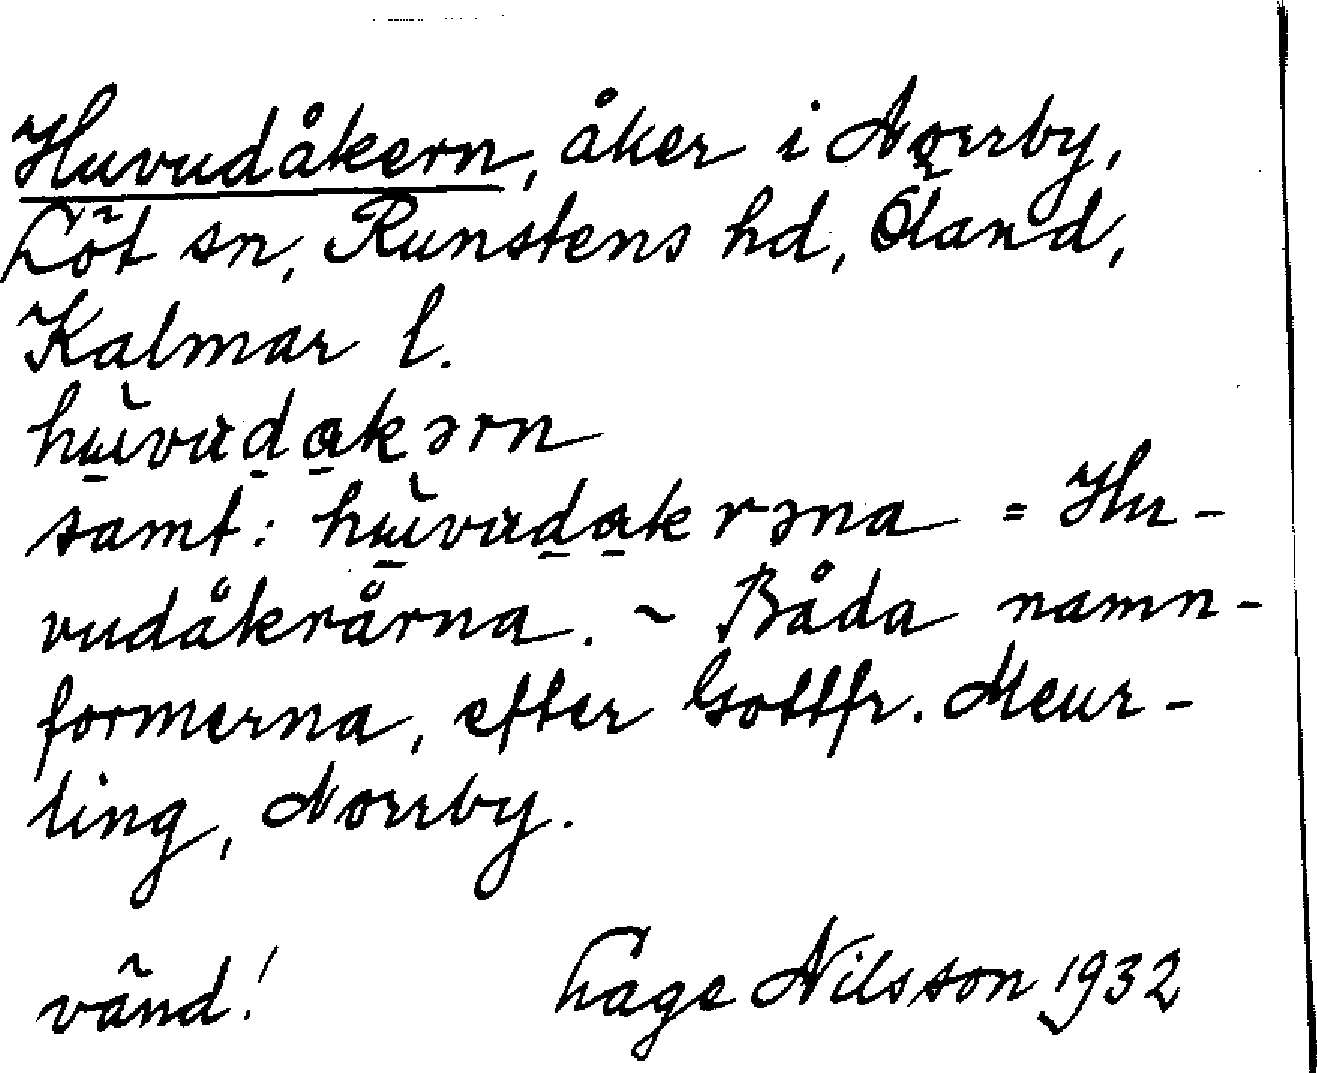 Huvudåkern, åker i Norrby,
Löt sn, Runstens hd, Öland,
Kalmar l.
hu̱̇̀vudạkərn
samt: hu̱̇̀vudạkrəna = Hu-
vudåkrårna. ~ Båda namn-
formerna, efter Gottfr. Meur-
ling, Norrby.
vänd! Lage Nilsson 1932